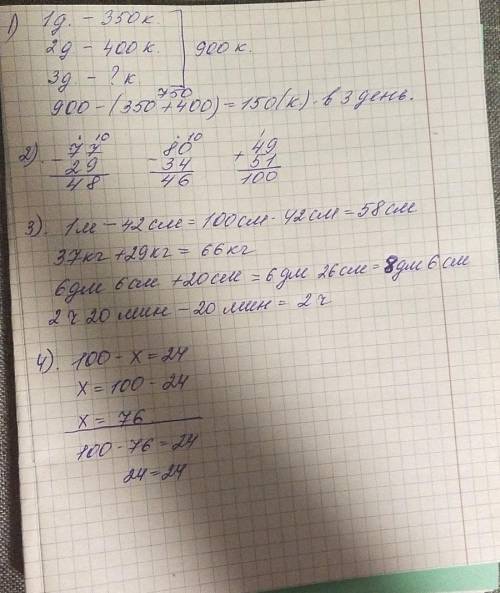 1) 1д. – 350 к.
2д – 400 к. 900 к.
3д – ? к
750
900 – (350 + 400) = 150 (к) · в 3 день.
2). 77 10 80 10 1 49
– 29 – 34 + 51
48 46 100
3). 1м – 42 см = 100 см - 42 см = 58 см
37кг + 29 кг = 66 кг
6 дм 6 см + 20 см = 6 дм 26 см = 8 дм 6 см
2 ч 20 мин – 20 мин = 2 ч
4). 100 – х = 24
х = 100 – 24
х = 76
100 - 76 = 24
24 = 24